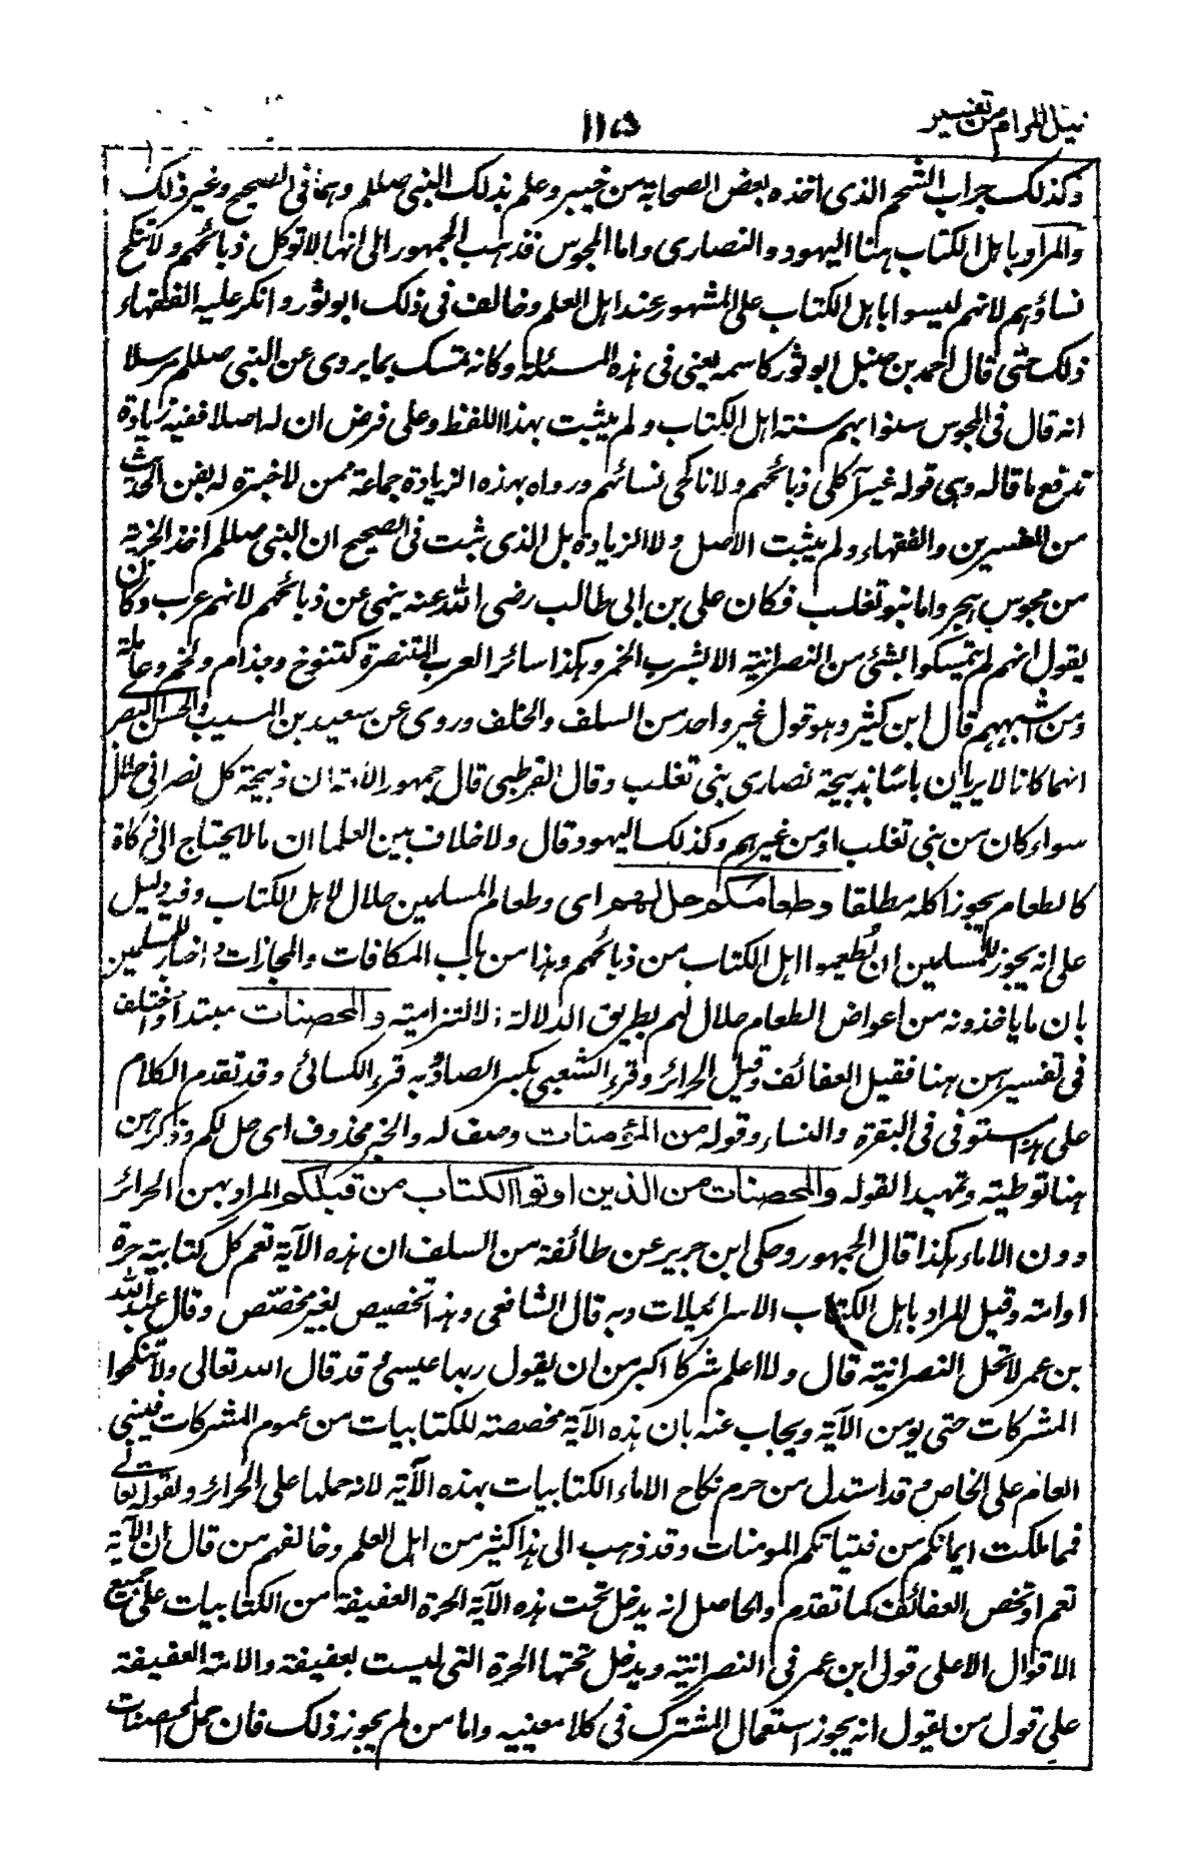 نيل المرام من تفسير
١١٥
وكذلك جراب الشحم الذى اخذه بعض الصحابة من خيبر وعلم بذلك النبى صللم وهما فى الصحيح وغير ذلك
والمراد باهل الكتاب هنا اليهود والنصارى واما المجوس فذهب الجمهور الى انها لا توكل ذبائحهم ولا تنكح
نساؤهم لانهم ليسوا باهل الكتاب على المشهور عند اهل العلم وخالف فى ذلك ابو ثور وانكر عليه الفقهاء
ذلك حتى قال احمد بن حنبل ابو ثور كاسمه يعنى فى هذه المسئلة وكانه تمسك بما يروى عن النبى صللم مرسلا
انه قال فى المجوس سنوا بهم سنة اهل الكتاب ولم يثبت بهذا اللفظ وعلى فرض ان له اصلا ففيه زيادة
تدفع ما قاله وهى قوله غير آكلى ذبائحهم ولا ناكحى نسائهم ورواه بهذه الزيادة جماعة ممن لا خبرة له بفن الحديث
من المفسرين والفقهاء ولم يثبت الاصل ولا الزيادة بل الذى ثبت فى الصحيح ان النبى صللم اخذ الجزية
من مجوس هجر واما بنو تغلب فكان على بن ابى طالب رضى الله عنه ينهى عن ذبائحهم لانهم عرب وكان
يقول انهم لم يتمسكوا بشئ من النصرانية الا بشرب الخمر وهكذا سائر العرب المتنصرة كتنوخ وجذام ولخم وعاملة
ومن اشبههم قال ابن كثير وهو قول غير واحد من السلف والخلف وروى عن سعيد بن المسيب والحسن البصرى
انهما كانا لا يريان باسا بذبيحة نصارى بنى تغلب وقال القرطبى قال جمهور الامة ان ذبيحة كل نصرانى حلال
سواء كان من بنى تغلب او من غيرهم وكذلك اليهود قال ولا خلاف بين العلما ان ما لا يحتاج الى ذكاة
كالطعام يجوز اكله مطلقا وطعامكم حل لهم اى وطعام المسلمين حلال لاهل الكتاب وفيه دليل
على انه يجوز للمسلمين ان يُطعموا اهل الكتاب من ذبائحهم وهذا من باب المكافات والمجازات واخبار للمسلمين
بان ما ياخذونه من اعواض الطعام حلال لهم بطريق الدلالة الالتزامية والمحصنات مبتدأ واختلف
فى تفسيرهن هنا فقيل العفائف وقيل الحرائر وقرء الشعبى بكسر الصاد وبه قرء الكسائى وقد تقدم الكلام
على هذا مستوفى فى البقرة والنساء وقوله من المؤمنات وصف له والخبر محذوف اى حل لكم وذكرهن
هنا توطية وتمهيدا لقوله والمحصنات من الذين اوتوا الكتاب من قبلكم والمراد بهن الحرائر
دون الاماء هكذا قال الجمهور وحكى ابن جرير عن طائفة من السلف ان هذه الآية تعم كل كتابية حرة
او امة وقيل المراد باهل الكتاب الاسرائيلات وبه قال الشافعى وهذا تخصيص بغير مخصص وقال عبد الله
بن عمر لا تحل النصرانية قال ولا اعلم شركا اكبر من ان يقول ربها عيسى وقد قال الله تعالى ولا تنكحوا
المشركات حتى يومن الآية ويجاب عنه بان هذه الآية مخصصة للكتابيات من عموم المشركات فيبنى
العام على الخاص وقد استدل من حرم نكاح الاماء الكتابيات بهذه الآية لانه حملها على الحرائر ولقوله تعالى
فمما ملكت ايمانكم من فتياتكم المومنات وقد ذهب الى هذا كثير من اهل العلم وخالفهم من قال ان الآية
تعم او تخص العفائف كما تقدم والحاصل انه يدخل تحت هذه الآية الحرة العفيفة من الكتابيات على جميع
الاقوال الا على قول ابن عمر فى النصرانية ويدخل تحتها الحرة التى ليست بعفيفة والامة العفيفة
على قول من يقول انه يجوز استعمال المشترك فى كلا معنييه واما من لم يجوز ذلك فان حمل المحصنات